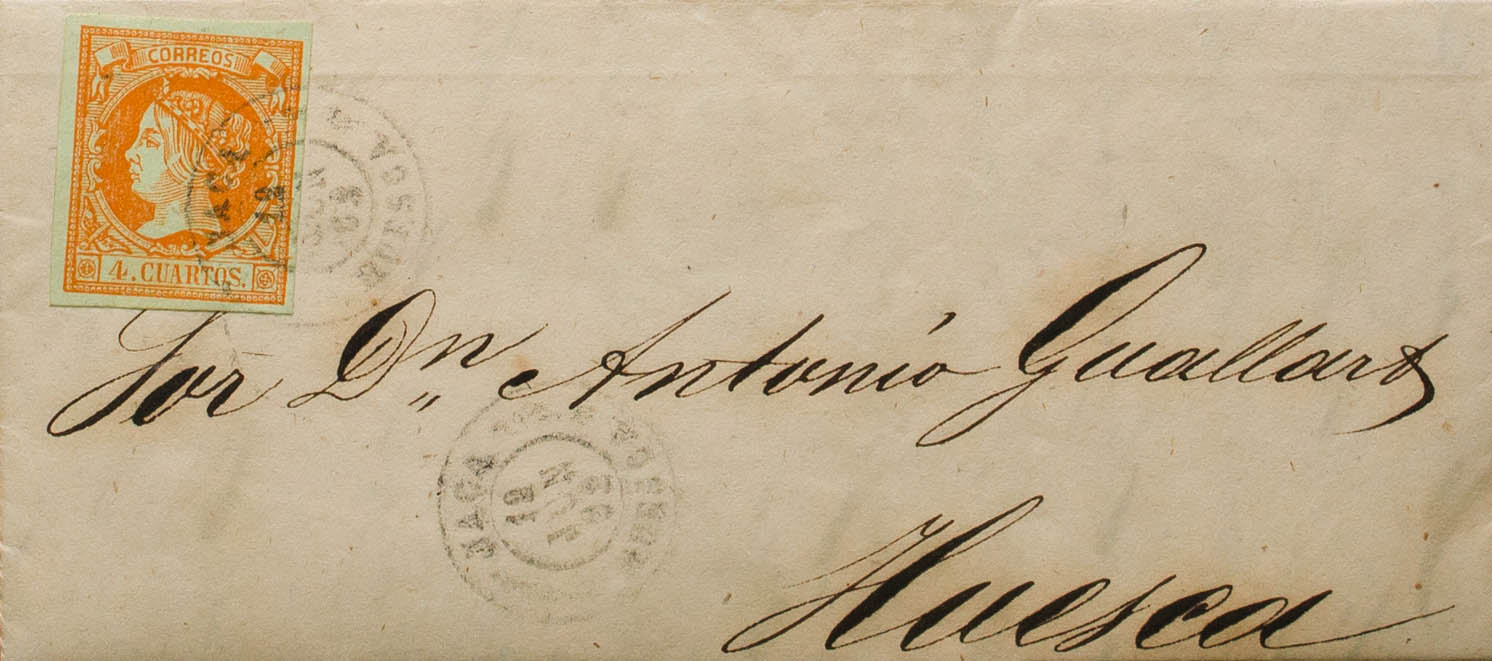 CORREOS
4. CUARTOS.
Sor Dn Antonio Guallart
JACA
HUESCA
19
Huesca